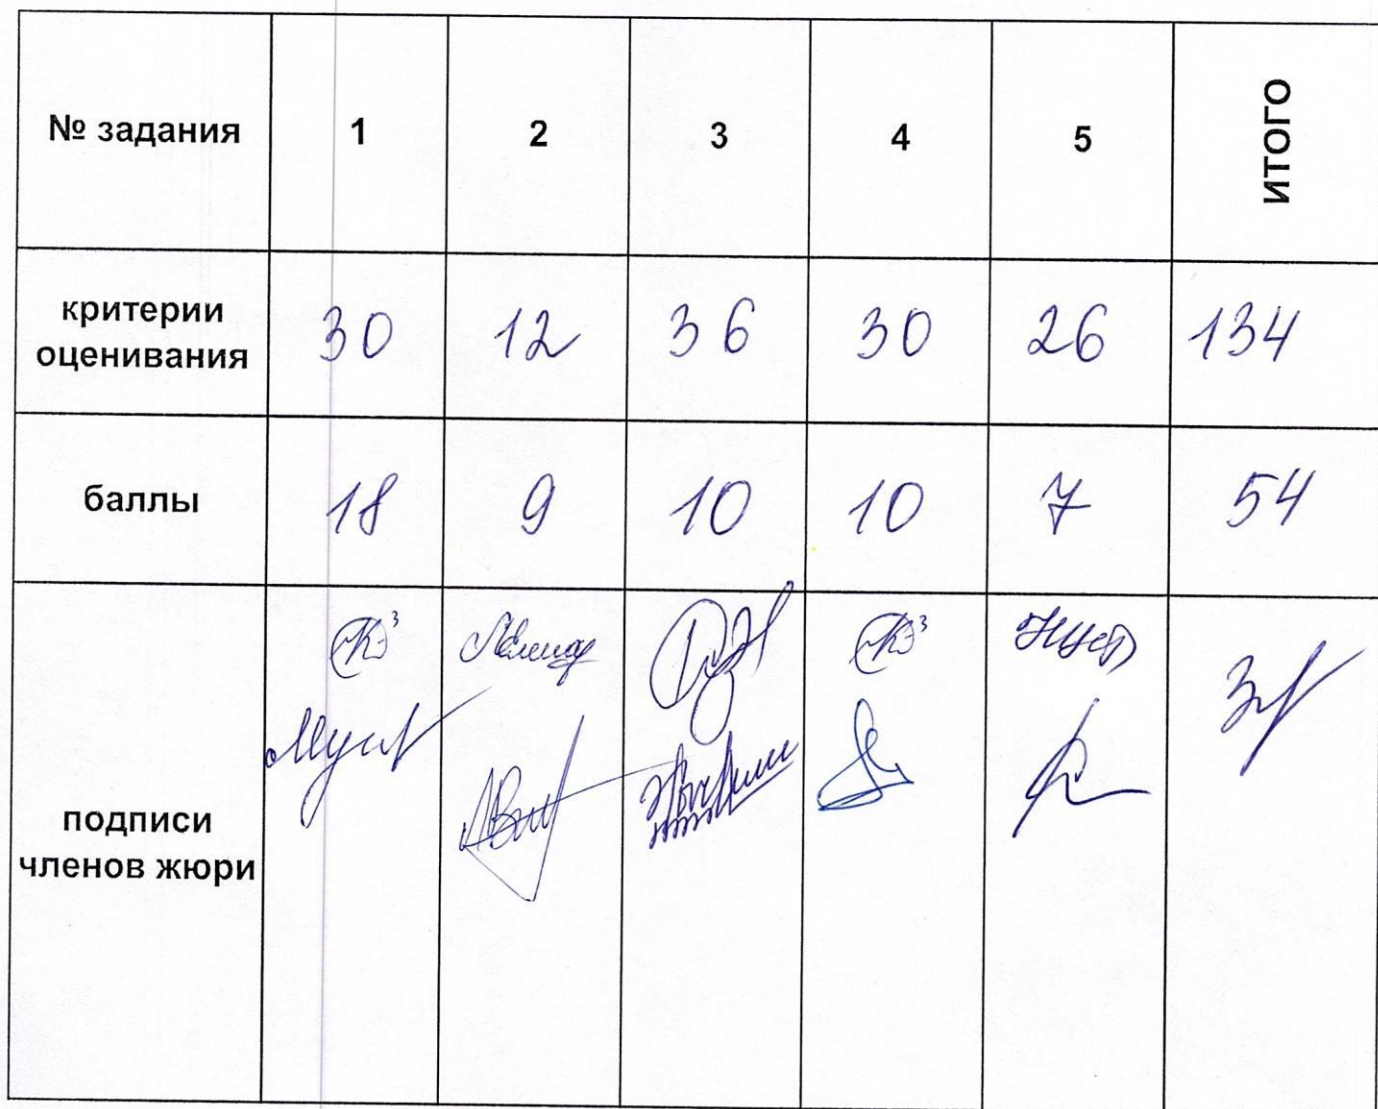 № задания 1 2 3 4 5 ИТОГО
критерии
оценивания 30 12 36 30 26 134
баллы 18 9 10 10 7 54
подписи
членов жюри